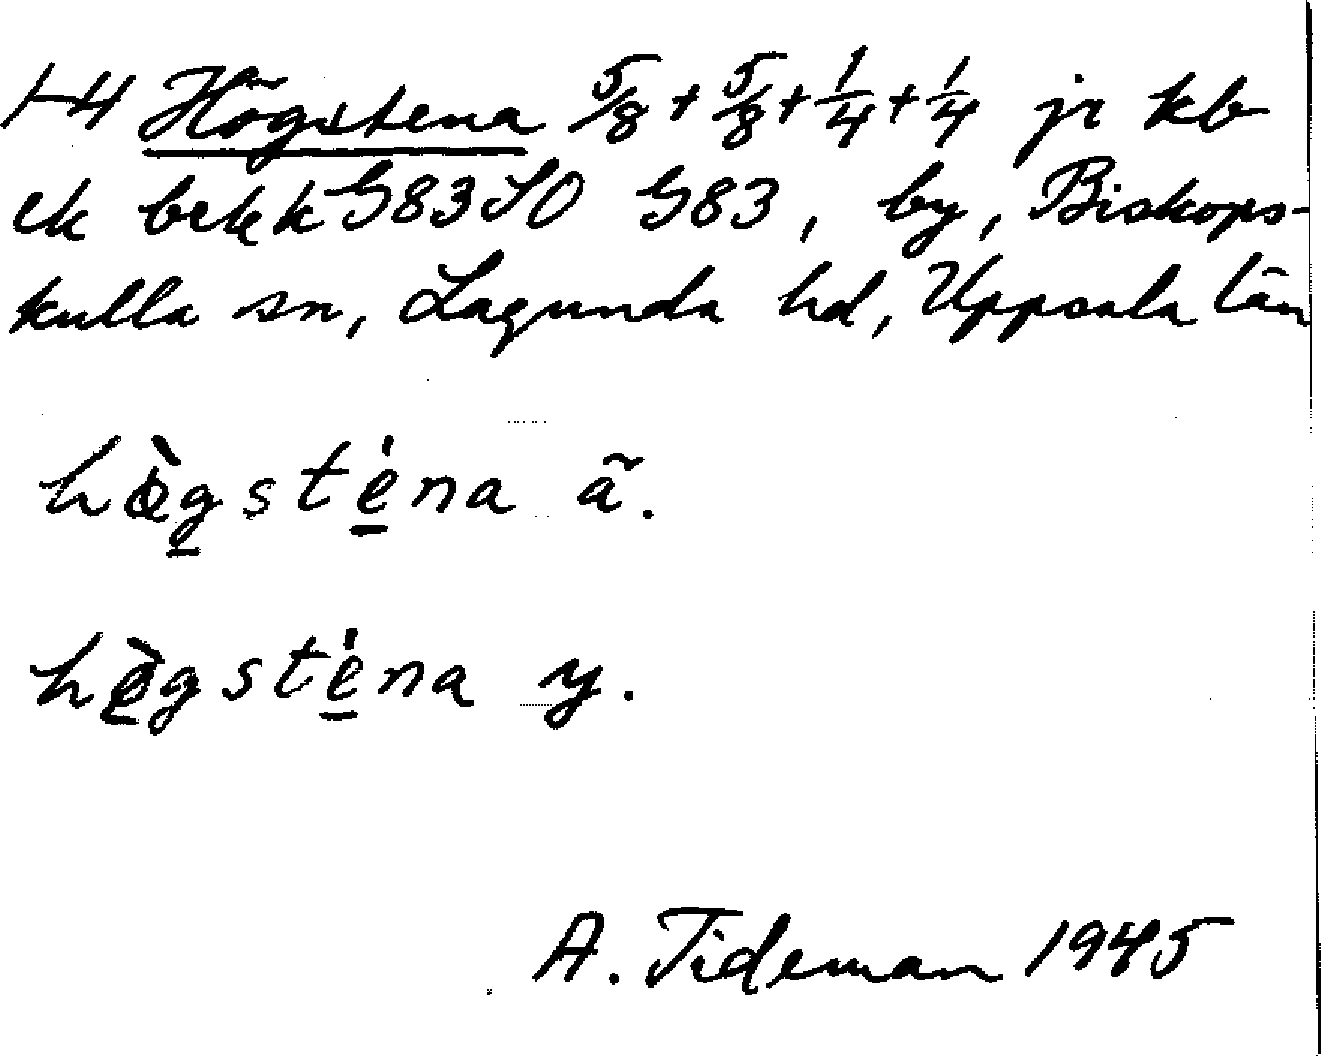 1-4 Högstena 5/8 + 5/8 + 1/4 + 1/4 jr kb
ek bekk G83SO G83, by, Biskops-
kulla sn, Lagunda hd, Uppsala län
hö̀gsténa ã.
hègsténa y.
A. Tideman 1945